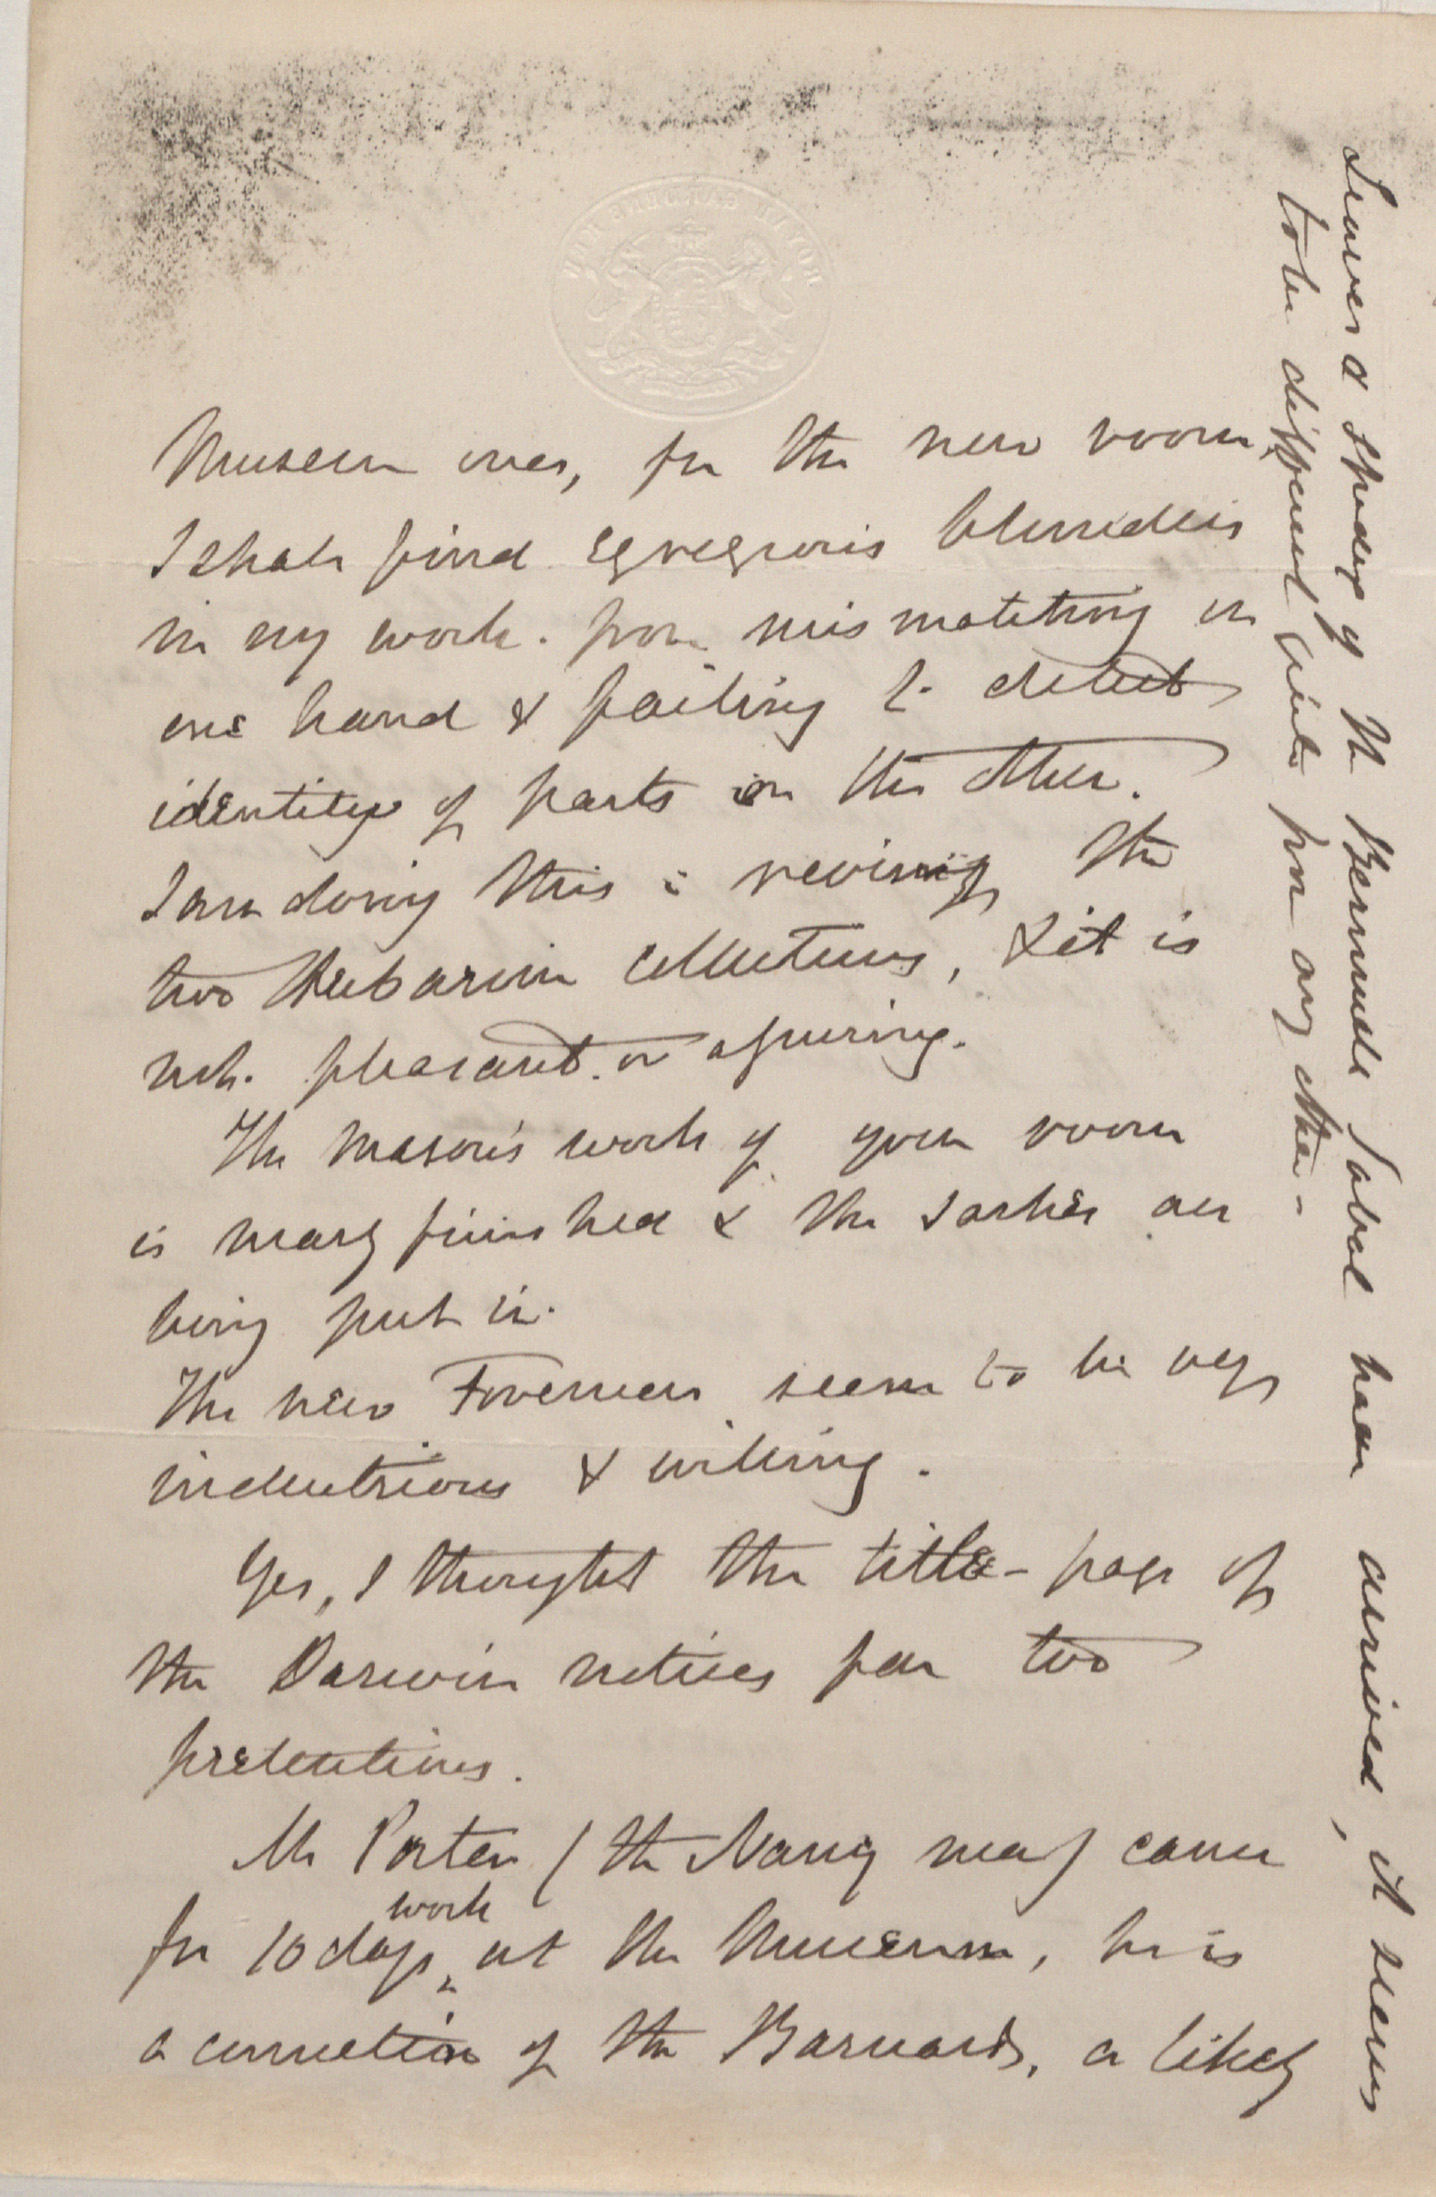 Museum ones, for the new room,
I shall find egregious blunders
in my work. from mismatching on
one hand & failing to detect
identity of parts on the other.
I am doing this in revising the
two Herbarium collections, & it is
not pleasant or assuring.
The Mason's work of your room
is nearly finished & the sashes are
being put in.
The new Foreman seems to be very
industrious & willing.
Yes, I thought the title-page of
the Darwin notices far too
pretentious.
Mr Porter (the Nancy man) came
for 10 days work at the Museum, he is
a connection of the Barnards, a likely
Leaves & Spadix of the Bermuda Sabal have arrived, it seems
to be different quite from any other –